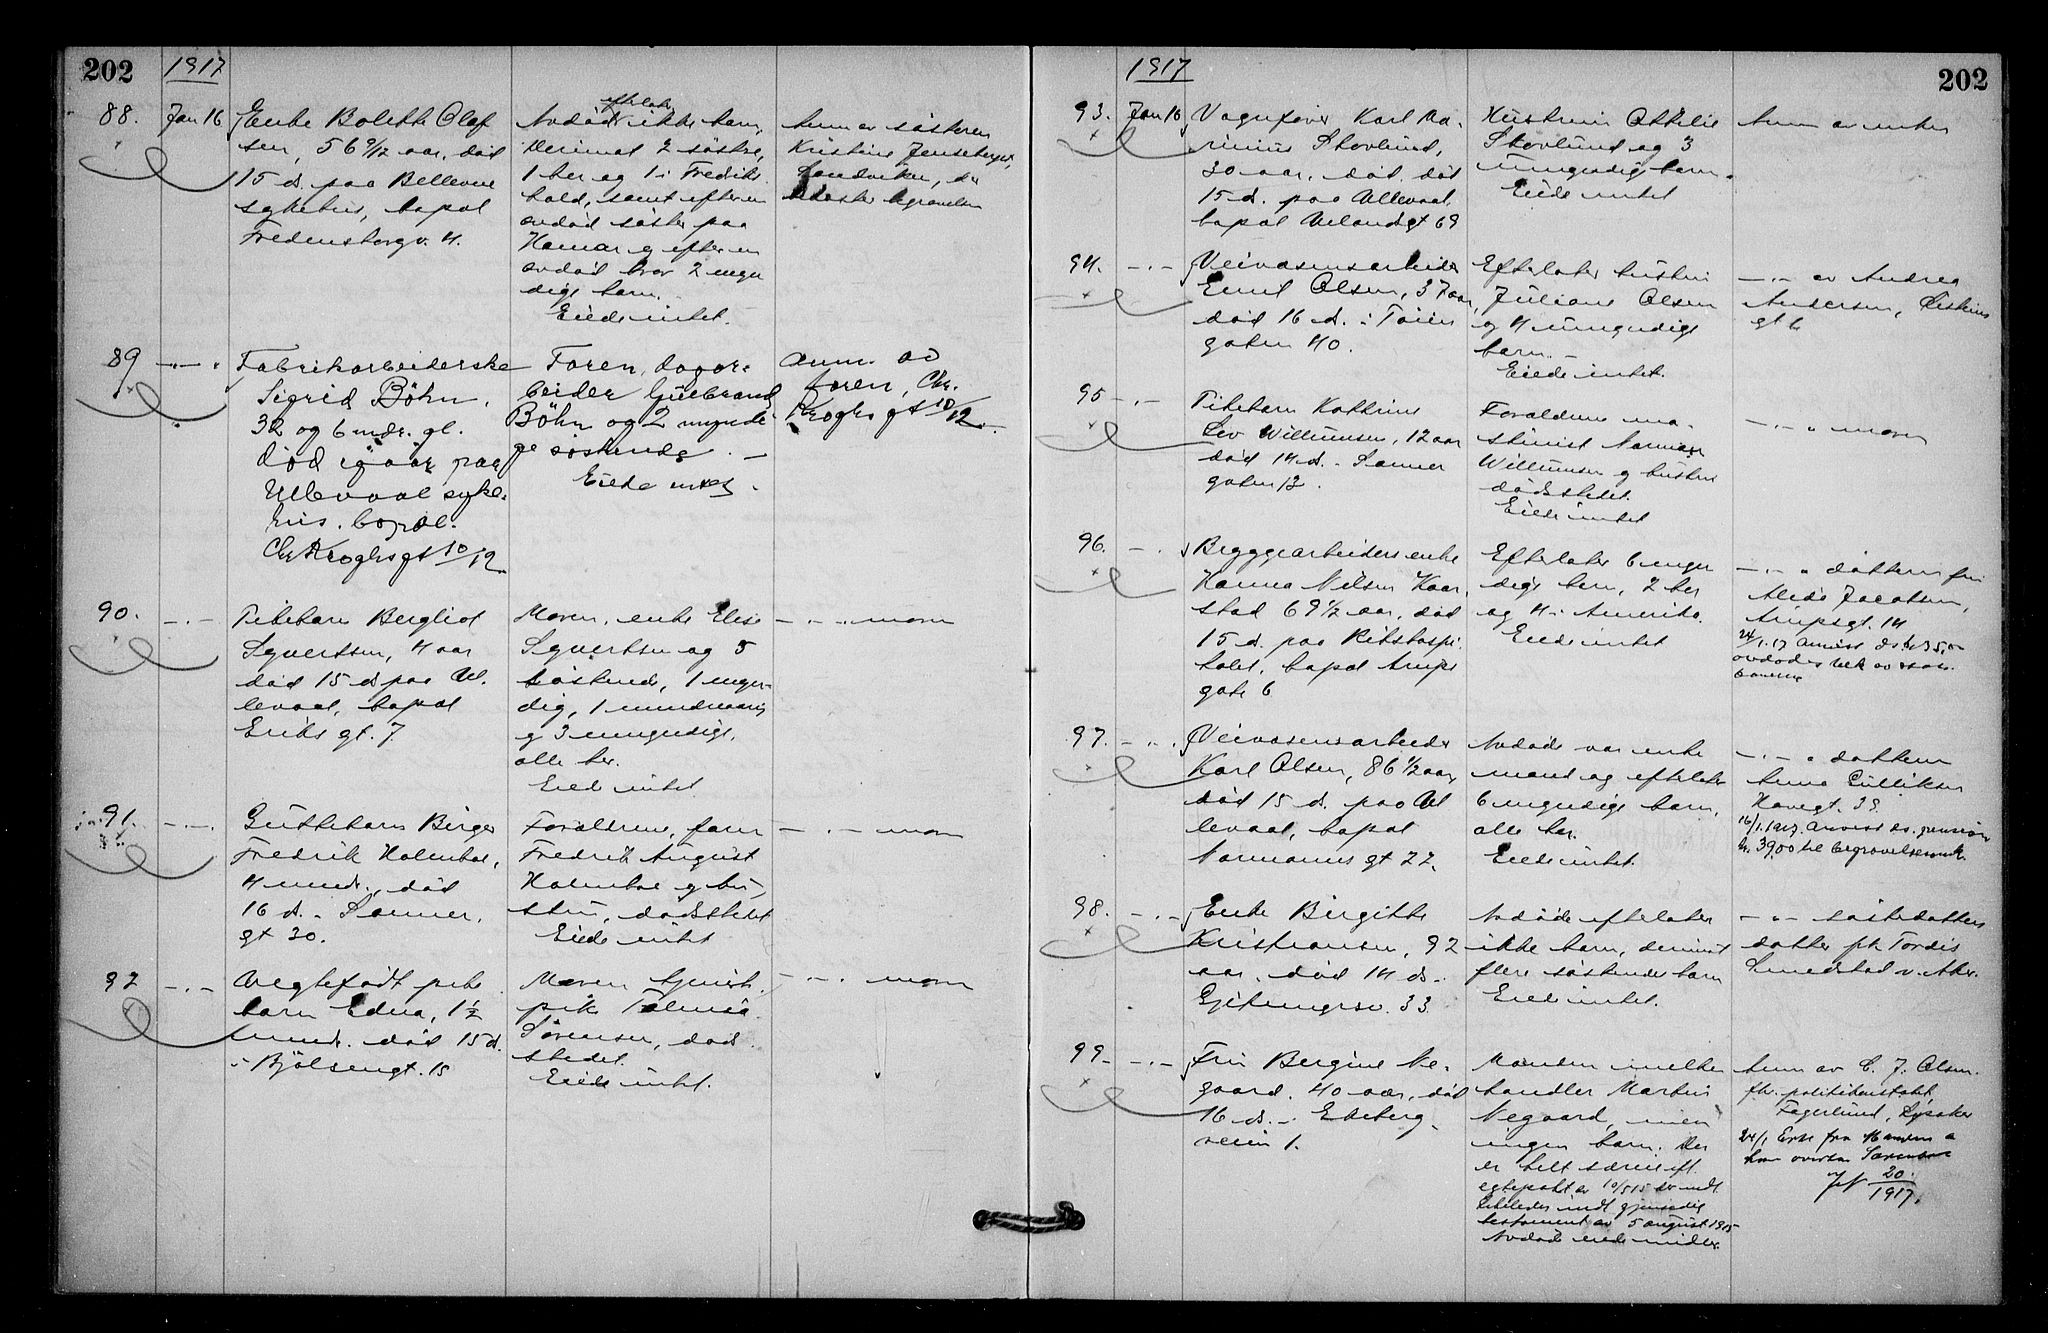 202
1917
88.
Jan 16
Enke Bolette Olaf
sen, 56 9/12 aar, død
15 d. paa Bellevue
sykehus, bopæl
Fredensborgv. 4.
Avdøde efterlater ikke barn,
derimot 2 søstre,
1 her og 1 i Fredriks
hald, samt efter en
avdød søster paa
Hamar og efter en
avdød bror 2 myn
dige barn.
Eiede intet.
Anm av søsteren
Kristine
Sandviken, der
bekoster begravelsen
89
-"-
Fabrikarbeiderske
Sigrid Böhn,
32 og 6 mdr. gl.
død igaar paa
Ullevaal syke-
hus. bopæl.
Chr Kroghsgt 10/12
Faren, dagar-
beider Gulbrand
Böhn og 2 myndi-
ge søskende. -
Eiede intet.
Anm. av
faren, Chr.
Kroghs gt 10/12.
90.
-"-
Pikebarn Bergliot
Syvertsen, 4 aar
død 15 d paa Ul-
levaal, bopæl
Eriks gt. 7
Moren, enke Elise
Syvertsen og 5
søskende, 1 myn-
dig, 1 mindreaarig
og 3 umyndige,
alle her.
Eiede intet
-"- moren
91.
-"-
Guttebarn Birger
Fredrik Holmboe,
4 mndr., død
16 d. i Sanner-
gt 30.
Forældrene, form
Fredrik August
Holmboe og hu-
stru, dødsstedet
Eiede intet
-"- moren
92
-"-
Uegtefødt pike
barn Edna, 1½
mndr. død 15 d.
i Bjölsengt. 15
Moren tjeneste-
pike
Sörensen, døds-
stedet.
Eiede intet.
-"- moren
1917
202
93.
Jan 16
Vognfører Karl Ma-
rinius Skovlund,
30 aar, død
15 d. paa Ullevaal,
bopæl Uelandsgt 69
Hustruen Othilie
Skovlund og 3
umyndige barn.
Eiede intet
Anm av enken
94.
-"-
Veivæsensarbeider
Emil Olsen, 37 aar,
død 16 d. i Tøien
gaten 40.
Efterlater hustru
Juliane Olsen
og 4 umyndige
barn. -
Eiede intet.
-"- av Andrea
Andersen,
gt 6
95
-"-
Pikebarn Kathrine
Willumsen, 12 aar
død 14 d. i Sanner
gaten 12.
Forældrene ma-
skinist
Willumsen og hustru
dødsstedet.
Eiede intet
-"- moren
96.
-"-
Bryggearbeiders enke
Hanna Nilsen Kaar-
stad 69½ aar, død
15 d. paa Rikshospi-
talet, bopæl Arups
gate 6
Efterlater 6 myn
dige barn, 2 her
og 4 i Amerika.
Eiede intet
-"- datteren fru
Alida Jacobsen,
Arupsgt. 14
24/1.17 Anvist
97.
-"-
Veivæsensarbeider
Karl Olsen, 86½ aar,
død 15 d. paa Ul
levaal, bopæl
Normanns gt 22.
Avdøde var enke
mand og efterlater
6 myndige barn,
alle her.
Eiede intet.
-"- datteren
Anna Gulliksen
Havegt. 39
16/1.1917. Anvist pension
kr. 39,00 til begravelsesomk.
98.
-"-
Enke Birgitte
Kristiansen, 92
aar, død 14 d. i
Gjetemyrsv. 33
Avdøde efterlater
ikke barn, derimot
flere søskendebarn
Eiede intet.
-"- søsterdatters
datter frk Tordis
Smedstad v. Aker.
99.
-"-
Fru Bergine Ne-
gaard, 40 aar, død
16 d. i Ekeberg-
veien 1.
Manden melke
handler Martin
Negaard, men
ingen barn. Der
er helt særeie efl.
egtepakt av 10/5 15
gjensidig
testament av 5 august 1915
Avdøde eiede midler.
Anm av C. J. Olsen
fhv. politikonstabel,
Fagerlund, Lysaker
24/1
20/1917.